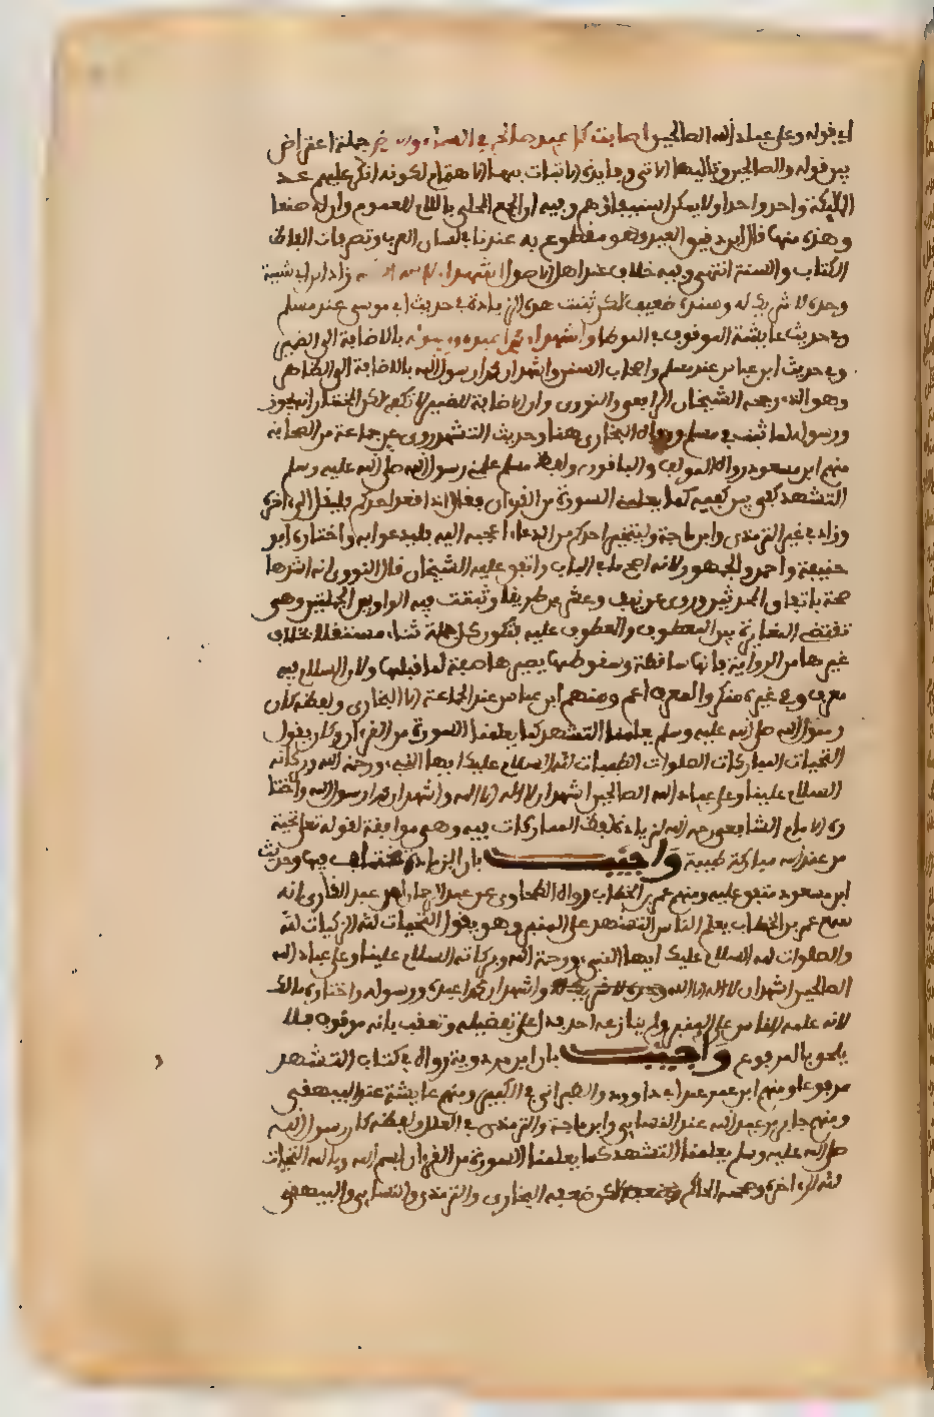 اي قوله وعلى عباد الله الصالحين اصابت كل عبد صالح في السماء والارض جملة اعتراض
بين قوله والصالحين وتاليها الاتي وفايدة الاتيان بها الاهتمام لكونه انكر عليهم عد
الملائكة واحدا واحدا ولا يمكن استيعابهم وفيه ان الجمع المحلى باللام للعموم وان له صيغا
وهذه منها قال ابن دقيق العيد وهو مقطوع به عندنا في لسان العرب وتصرفات الفاظ
الكتاب والسنة انتهى وفيه خلاف عند اهل الاصول اشهد ان لا اله الا الله زاد ابن ابي شيبة
وحده لا شريك له وسنده ضعيف لكن ثبتت هذه الزيادة في حديث ابي موسى عند مسلم
وفي حديث عايشة الموقوف في الموطا واشهد ان محمدا عبده ورسوله بالاضافة الى الضمير
وفي حديث ابن عباس عند مسلم واصحاب السنن واشهد ان محمدا رسول الله بالاضافة الى الظاهر
وهو الذي رجحه الشيخان الرافعي والنووي وان الاضافة للضمير لا تكفي لكن المختار انه يجوز
ورسوله لما ثبت في مسلم ورواه البخاري هنا وحديث التشهد روي عن جماعة من الصحابة
منهم ابن مسعود رواه المولف والباقون ولفظ مسلم علمني رسول الله صلى الله عليه وسلم
التشهد كفي بين كفيه كما يعلمني السورة من القران فقال اذا قعد احدكم فليقل الى اخره
وزاد في غير الترمذي وابن ماجة وليتخير احدكم من الدعاء اعجبه اليه فليدعوا به واختاره ابو
حنيفة واحمد والجمهور لانه اصح ما في الباب واتفق عليه الشيخان قال النووي انه اشدها
صحة باتفاق المحدثين وروي عن نيف وعشرين طريقا وثبتت فيه الواو بين الجملتين وهي
تقتضي المغايرة بين المعطوف والمعطوف عليه فتكون كل جملة ثناء مستقلا بخلاف
غيرها من الرواية فانها ساقطة وسقوطها يصيرها صفة لما قبلها ولان السلام فيه
معرف وفي غيره منكر والمعرف اعم ومنهم ابن عباس عند الجماعة الا البخاري ولفظه كان
رسول الله صلى الله عليه وسلم يعلمنا التشهد كما يعلمنا السورة من القران وكان يقول
التحيات المباركات الصلوات الطيبات لله السلام عليك ايها النبي ورحمة الله وبركاته
السلام علينا وعلى عباد الله الصالحين اشهد ان لا اله الا الله واشهد ان محمدا رسول الله واختا
ره الامام الشافعي رحمه الله لزيادة لفظ المباركات فيه وهي موافقة لقوله تعالى تحية
من عند الله مباركة طيبة واجيب بان الزيادة مختلف فيها وحديث
ابن مسعود متفق عليه ومنهم عمر بن الخطاب رواه الطحاوي عن عبد الرحمان بن عبد القاري انه
سمع عمر بن الخطاب يعلم الناس التشهد على المنبر وهو يقول التحيات لله الزكيات لله
والصلوات لله السلام عليك ايها النبي ورحمة الله وبركاته السلام علينا وعلى عباد الله
الصالحين اشهد ان لا اله الا الله وحده لا شريك له واشهد ان محمدا عبده ورسوله واختاره مالك
لانه علمه للناس على المنبر ولم ينازعه احد فدل على تفضيله وتعقب بانه موقوف فلا
يلحق بالمرفوع واجيب بان ابن مردوية رواه في كتاب التشهد
مرفوعا ومنهم ابن عمر عند ابي داوود والطبراني في الكبير ومنهم عايشة عند البيهقي
ومنهم جابر بن عبد الله عند النسايي وابن ماجة والترمذي في العلل ولفظه كان رسول الله
صلى الله عليه وسلم يعلمنا التشهد كما يعلمنا السورة من القران بسم الله وبالله التحيات
لله الى اخره وصححه الحاكم لكن ضعفه البخاري والترمذي والنسايي والبيهقي